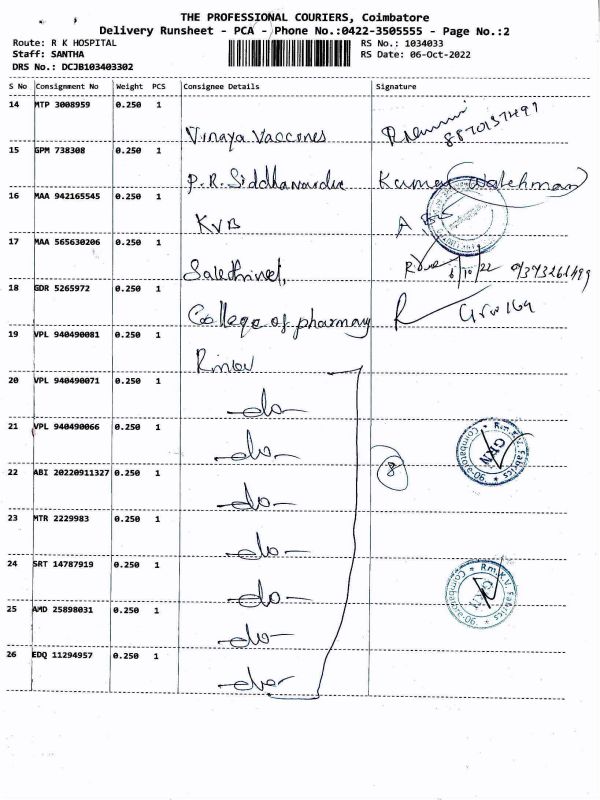 THE PROFESSIONAL COURIERS, Coimbatore
Delivery Runsheet - PCA - Phone No.:0422-3505555 - Page No.:2
Route: R K HOSPITAL RS No.: 1034033
Staff: SANTHA RS Date: 06-Oct-2022
DRS No.: DCJB103403302
S No Consignment No Weight PCS Consignee Details Signature
14 MTP 3008959 0.250 1
Vinaya Vaccines 8870137491
15 GPM 738308 0.250 1
P.R. Siddhavaidya Kumar (Watchman)
16 MAA 942165545 0.250 1
KVB
17 MAA 565630206 0.250 1
6/10/22 9373261499
18 GDR 5265972 0.250 1
College of pharmacy
19 VPL 940490081 0.250 1
20 VPL 940490071 0.250 1
-do-
21 VPL 940490066 0.250 1
-do- Rm.K.V. Fabrics Coimbatore-06.
22 ABI 20220911327 0.250 1 8
-do-
23 MTR 2229983 0.250 1
-do-
24 SRT 14787919 0.250 1
-do- Rm.K.V. Fabrics Coimbatore-06.
25 AMD 25898031 0.250 1
-do-
26 EDQ 11294957 0.250 1